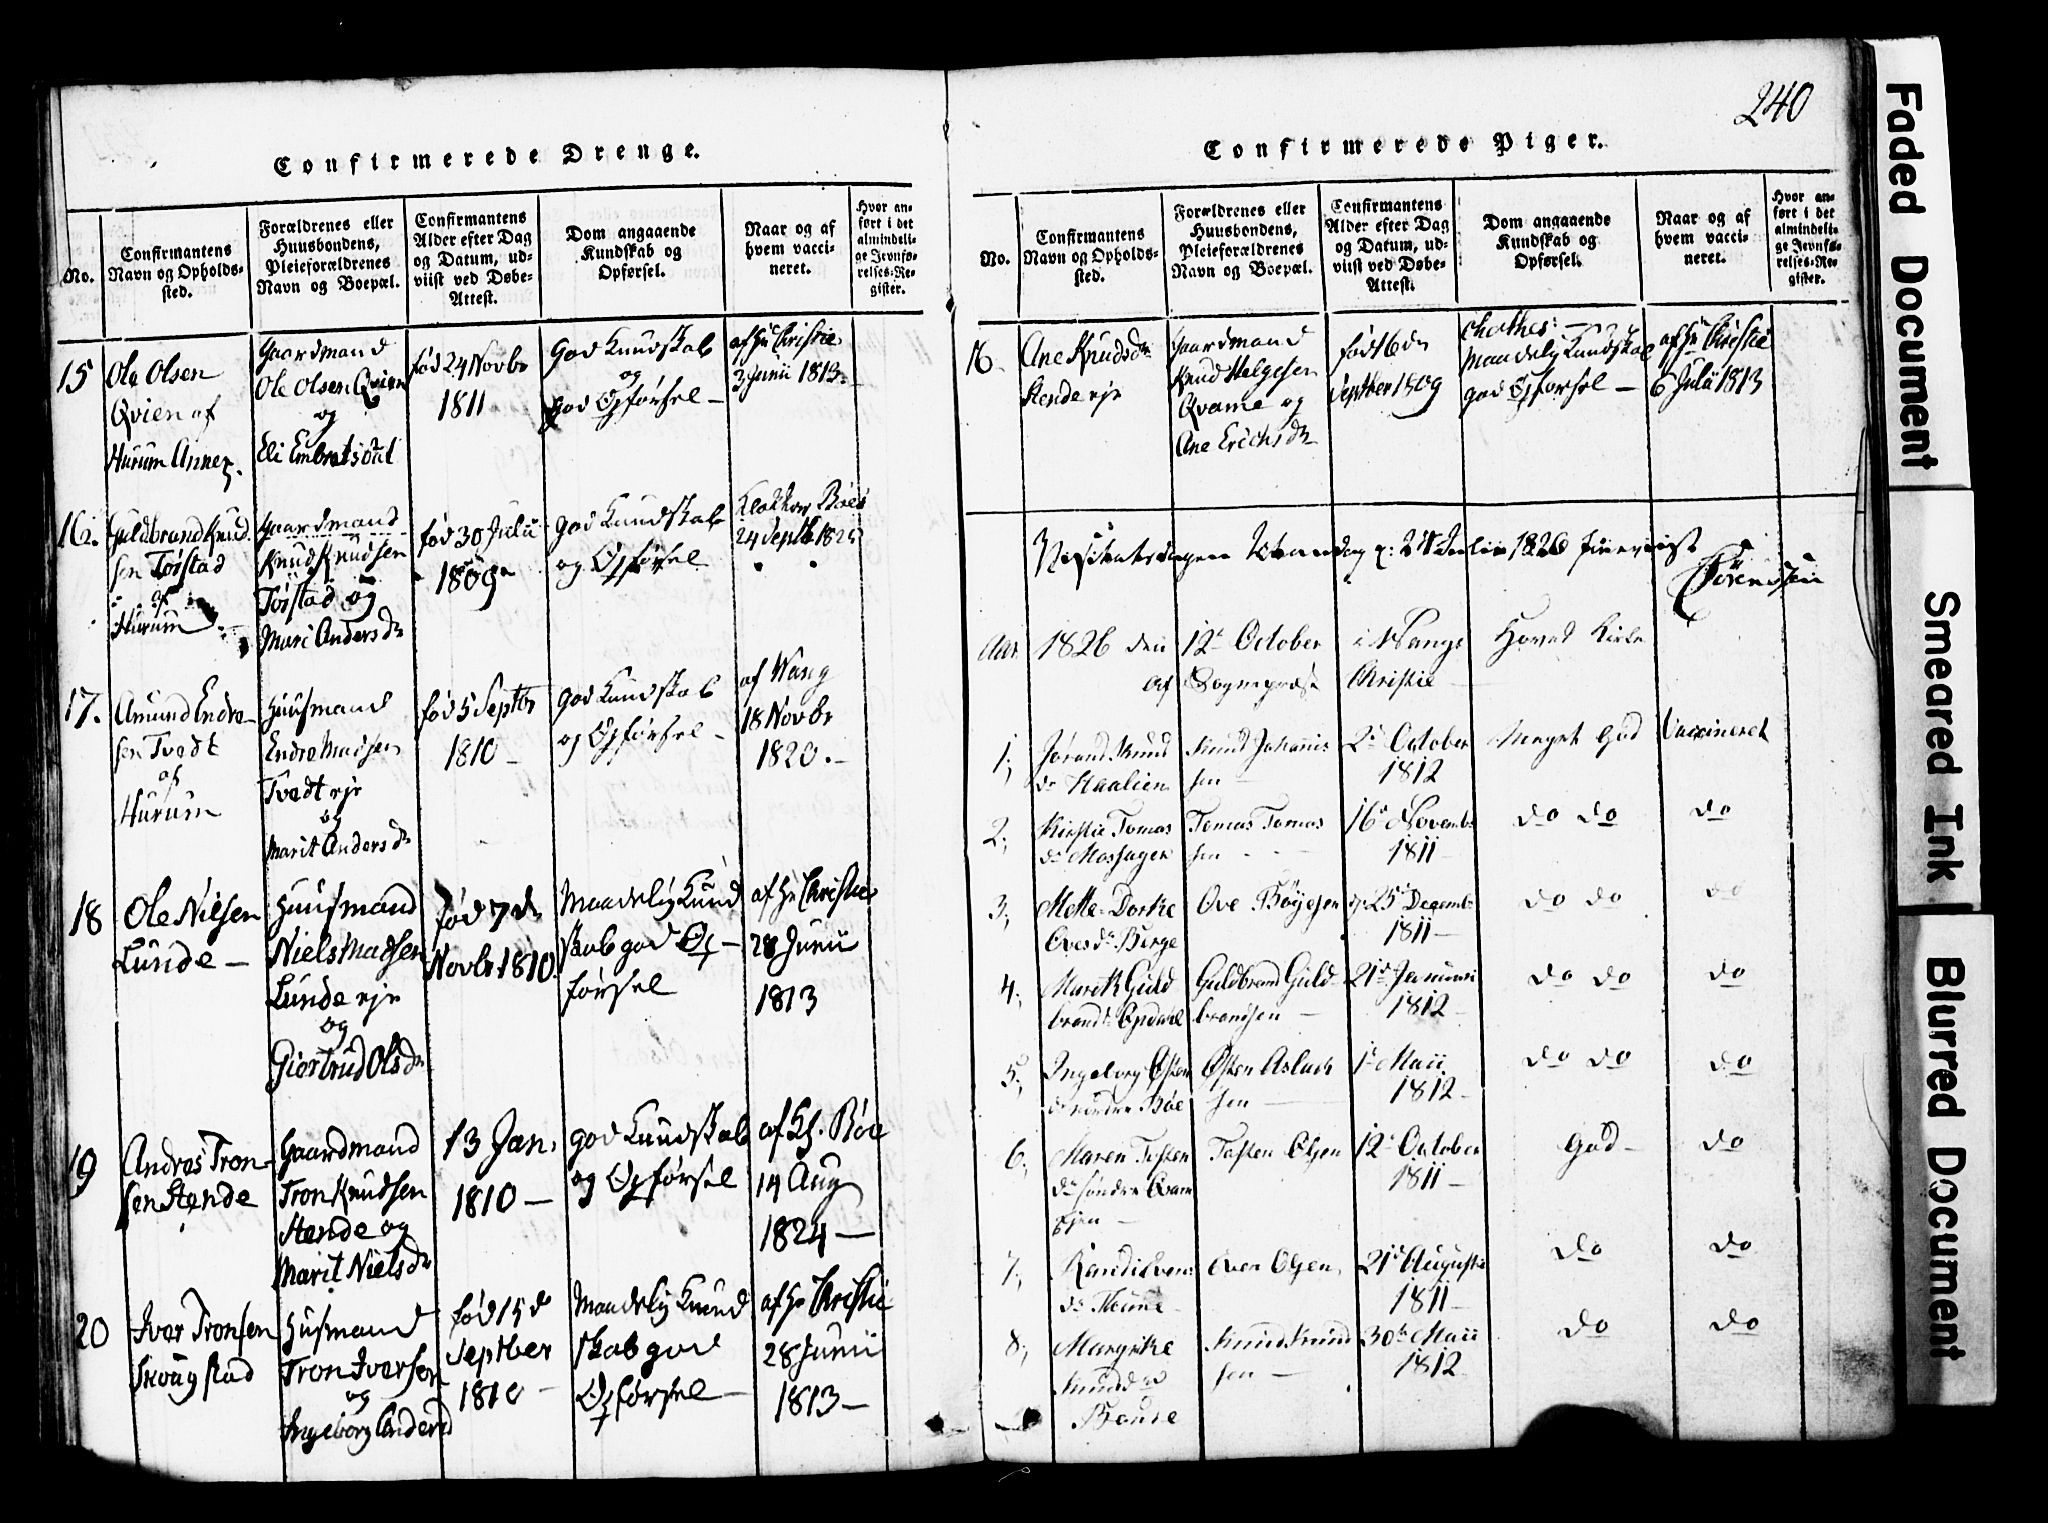 240
Confirmerede Drenge.
No.
Confirmantens
Navn og Opholds-
sted.
Forældrenes eller
Huusbondens,
Pleieforældrenes
Navn og Boepæl.
Confirmantens
Alder efter Dag
og Datum, ud-
viist ved Døbe-
Attest.
Dom angaaende
Kundskab og
Opførsel.
Naar og af
hvem vacci-
neret.
Hvor an-
ført i det
almindeli-
ge Jevnfø-
relses-Re-
gister.
15
Ole Olsen
Qvien af
Hurum Annex.
Gaardmand
Ole Olsen Qvien
og
Eli Embretsdat
fød 24 Novbr
1811
God Kundskab
og
god Opførsel —
af Hr Christie
3 Junii 1813 —
16.
Guldbrand Knud
sen Tørstad
af
Hurum
Gaardmand
Knud Knudsen
Tørstad og
Mari Andersdr
fød 30 Julii
1809
god Kundskab
og Opførsel
Klokker Böe
24 Septbr 1825
17.
Amund Endre-
sen Tvedt
af
Hurum
Huusmand
Endre Madsen
Tvedt eje
og
Marit Andersdr
fød 5 Septbr
1810 —
god Kundskab
og Opførsel —
af Wang
18 Novbr
1820. —
18
Ole Nilsen
Lunde —
Huusmand
Niels Madsen
Lunde eje
og
Giertrud Olsdr
Fød 7 d
Novbr 1810
Maadelig Kund
skab god Op-
førsel
af Hr Christie
28 Junii
1813
19
Andres Tron-
sen Stende
Gaardmand
Tron Knudsen
Stende og
Marit Nielsdr
13 Jan.
1810 —
god Kundskab
og Opførsel
af Kl. Böe
14 Aug
1824 —
20
Iver Tronsen
Skougstad
Husmand
Tron Iversen
og
Ingeborg Andersd
fød 15 d
Septber
1810 —
Maadelig Kund
skab god
Opførsel —
af Hr Christie
28 Junii
1813 —
Confirmerede Piger.
No.
Confirmantens
Navn og Opholds-
sted.
Forældrenes eller
Huusbondens,
Pleieforældrenes
Navn og Boepæl.
Confirmantens
Alder efter Dag
og Datum, ud-
viist ved Døbe-
Attest.
Dom angaaende
Kundskab og
Opførsel.
Naar og af
hvem vacci-
neret.
Hvor an-
ført i det
almindeli-
ge Jevnfø-
relses-Re-
gister.
16.
Ane Knudsdr
Stende eje
Gaardmand
Knud Helgesen
Qvame og
Ane Erichsdr
fød 16 de
Septber 1809
Maadelig Kundskab
god Opførsel —
af Hr Christie
6 Julii 1813
1826
Sörensen
Aar 1826 den 12te October i Wangs Hoved Kirke
af Sognepræst Christie
1,
Jørand Knud
dr Haalien
Knud Johannis
sen —
2de October
1812
Meget God
Vaccineret
2,
Kirstie Tomas
dr Moshagen
Tomas Tomas
sen
16de Novembr
1811
do do
do
3,
Mette Dorthe
Ovesdr Berge
Ove Böyesen
25de Decembr
1811 —
do do
do
4,
Marit Guld
brandsdr Opdahl
Guldbrand Guld-
brandsen —
21de Januari
1812 —
do do
do
5,
Ingeborg Østen
dr nordre Böe
Østen Aslach
sen —
1de Maii
1812 —
do do
do
6,
Maren Tosten
dr søndre Qvam
ejen —
Tosten Olsen
12te October
1811 —
God —
do
7,
Randi Iver
dr
Iver Olsen
21de Augusti
1811 —
do
do
8,
Margrthe
Knudsdr
Knud Knud
sen —
30te Maii
1812
do
do
Faded Document
Smeared Ink
Blurred Document